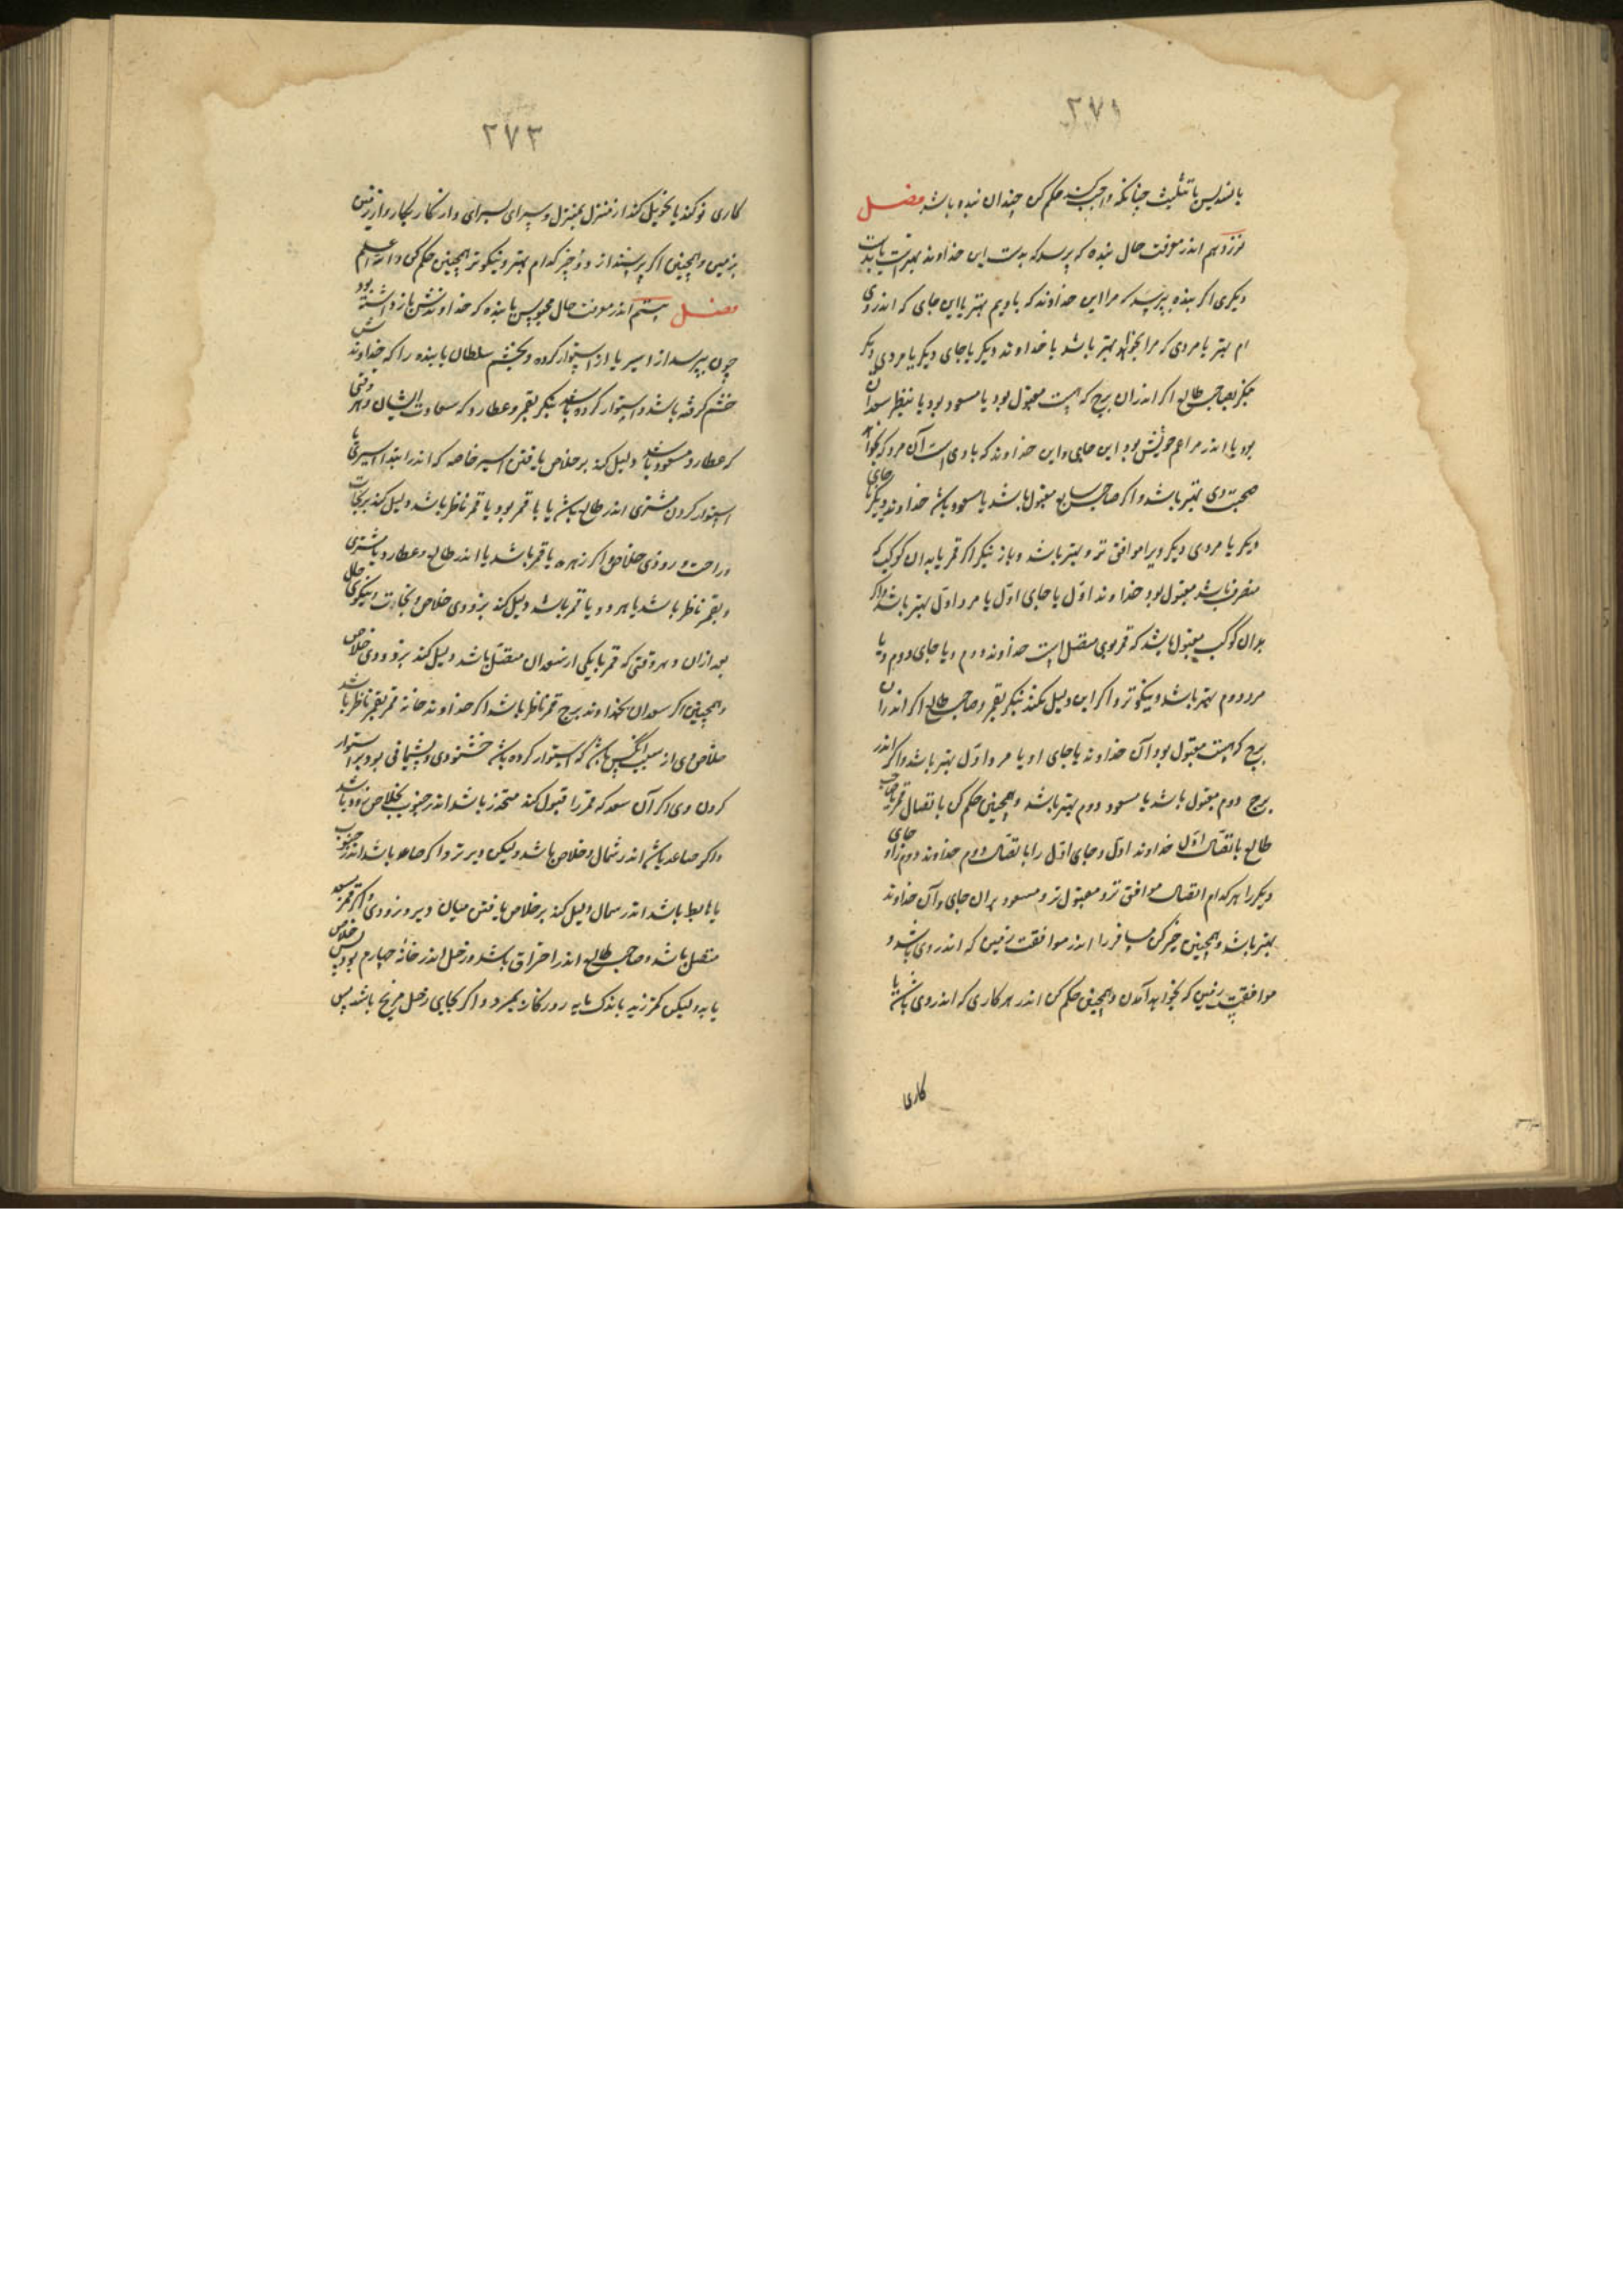 ۲۷۲
با تسدیس یا تثلیث چنانکه واجب کند حکم کن چندان بنده باشد فصل
نوزدهم اندر معرفت حال بنده که پرسد که بدست این خداوند بهتر است یا بدست
دیگری اگر بنده بپرسد که مرا این خداوند که با ویم بهتر یا این جای که اندر وی
ام بهتر یا مردی که مرا بخواهد بهتر باشد یا خداوند دیگر یا جای دیگر یا مردی دیگر
بنگر بصاحب طالع اگر اندران برج که هست مقبول بود یا مسعود بود یا بنظر سعدان
بود یا اندر مزاعم خویش بود این جای و این خداوند که با وی است آن مرد که بخواهد
صحبت وی بهتر باشد و اگر صاحب سابع مقبول باشد یا مسعود باشد خداوند دیگر یا جای
دیگر یا مردی دیگر ویرا موافق تر و بهتر باشد و باز بنگر اگر قمر یا بدان کوکب که
منصرف باشد مقبول بود خداوند اول یا جای اول یا مرد اول بهتر باشد و اگر
بدان کوکب مقبول باشد که قمر بوی متصل است خداوند دوم و یا جای دوم و یا
مرد دوم بهتر باشد و نیکوتر و اگر این دلیل نکند بنگر بقمر و صاحب طالع اگر اندران
برج که هست مقبول بود آن خداوند یا جای او یا مرد اول بهتر باشد و اگر اندر
برج دوم مقبول باشد یا مسعود دوم بهتر باشد و همچنین حکم کن باتصال قمر یا صاحب
طالع باتصال اول خداوند اول و جای اول را باتصال دوم خداوند دوم را و جای
دیگر را هر کدام اتصال موافق تر و مقبول تر و مسعود بران جای و آن خداوند
بهتر باشد و همچنین خبر کن مسافر را اندر موافقت زمین که اندر وی باشد و
موافقت زمین که بخواهد آمدن و همچنین حکم کن اندر هر کاری که اندر وی باشد یا
کاری
۲۷۳
کاری نو کند یا تحویل کند از منزل بمنزل و سرای بسرای و از کار بکار و از زمین
بزمین و همچنین اگر پرسند از دو چیز کدام بهتر و نیکوتر همچنین حکم کن والله اعلم
فصل بیستم اندر معرفت حال محبوس یا بنده که خداوندش باز داشته بود
چون بپرسد از اسیر یا از استوار کرده و بخشم سلطان یا بنده را که خداوندش
خشم گرفته باشد و استوار کرده باشد بنگر بقمر و عطارد که سعادت ایشان و هر وقتی
که عطارد مسعود باشد دلیل کند بر خلاص یافتن اسیر خاصه که اندر ابتدا اسیری یا
استوار کردن مشتری اندر طالع باشد یا با قمر بود یا قمر ناظر باشد دلیل کند بر نجات
و راحت و زودی خلاص و اگر زهره با قمر باشد یا اندر طالع و عطارد با مشتری
و بقمر ناظر باشد یا هر دو یا قمر باشد دلیل کند بزودی خلاص و نجات و نیکوی حال
بعد ازان و هر وقتی که قمر با یکی از سعدان متصل باشد دلیل کند بزودی خلاص
و همچنین اگر سعدان بخداوند برج قمر ناظر باشد اگر خداوند خانه قمر بقمر ناظر باشد
خلاص وی از سبب آنکس باشد که استوار کرده باشد خشنودی و پشیمانی بود بر استوار
کردن وی و اگر آن سعد که قمر را قبول کند منحدر باشد اندر جنوب بخلاص زود باشد
و اگر صاعد باشد اندر شمال و خلاص باشد ولیکن دیرتر و اگر صاعد باشد اندر جنوب
یا هابط باشد اندر شمال دلیل کند بر خلاص یافتن میان دیر و زودی و اگر قمر بسعد
متصل باشد و صاحب طالع اندر احتراق باشد و زحل اندر خانه چهارم بود پس خلاص
یابد ولیکن کمتر زید باندک مایه روزگار بمیرد و اگر بجای زحل مریخ باشد پس